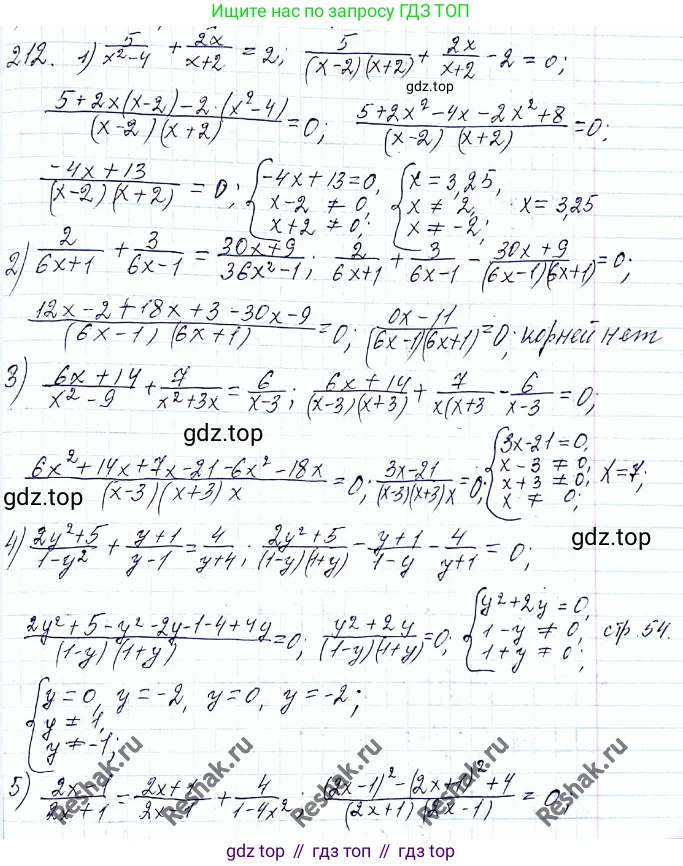 Ищите нас в поиске ГДЗ ТОП
212. 1) 5/(x²-4) + 2x/(x+2) = 2; 5/((x-2)(x+2)) + 2x/(x+2) - 2 = 0;
gdz.top
(5+2x(x-2)-2·(x²-4))/((x-2)(x+2)) = 0; (5+2x²-4x-2x²+8)/((x-2)(x+2)) = 0;
(-4x+13)/((x-2)(x+2)) = 0; { -4x+13=0, x-2≠0, x+2≠0; { x=3,25, x≠2, x≠-2; x=3,25
2) 2/(6x+1) + 3/(6x-1) = (30x+9)/(36x²-1); 2/(6x+1) + 3/(6x-1) - (30x+9)/((6x-1)(6x+1)) = 0;
(12x-2+18x+3-30x-9)/((6x-1)(6x+1)) = 0; (0x-11)/((6x-1)(6x+1)) = 0; корней нет
3) (6x+14)/(x²-9) + 7/(x²+3x) = 6/(x-3); (6x+14)/((x-3)(x+3)) + 7/(x(x+3) - 6/(x-3) = 0;
gdz.top
(6x²+14x+7x-21-6x²-18x)/((x-3)(x+3)x) = 0; (3x-21)/((x-3)(x+3)x) = 0; { 3x-21=0, x-3≠0, x+3≠0, x≠0; x=7;
gdz.top
4) (2y²+5)/(1-y²) + (y+1)/(y-1) = 4/(y+4); (2y²+5)/((1-y)(1+y)) - (y+1)/(1-y) - 4/(y+1) = 0;
gdz.top
(2y²+5-y²-2y-1-4+4y)/((1-y)(1+y)) = 0; (y²+2y)/((1-y)(1+y)) = 0; { y²+2y=0, 1-y≠0, 1+y≠0; стр. 54.
{ y=0, y=-2, y≠1, y≠-1; y=0, y=-2;
Reshak.ru Reshak.ru Reshak.ru
5) (2x-1)/(2x+1) = (2x+1)/(2x-1) + 4/(1-4x²); ((2x-1)²-(2x+1)²+4)/((2x+1)(2x-1)) = 0;
gdz.top // гдз.топ // gdz.top